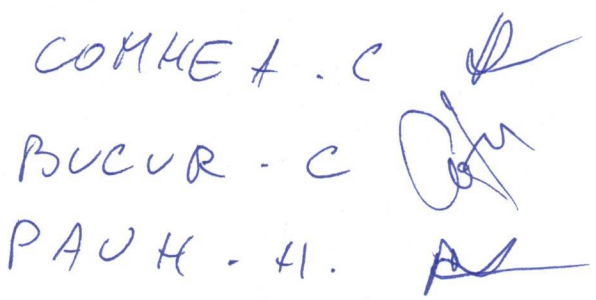 COMNEA . C
BUCUR - C
PAUN - N.